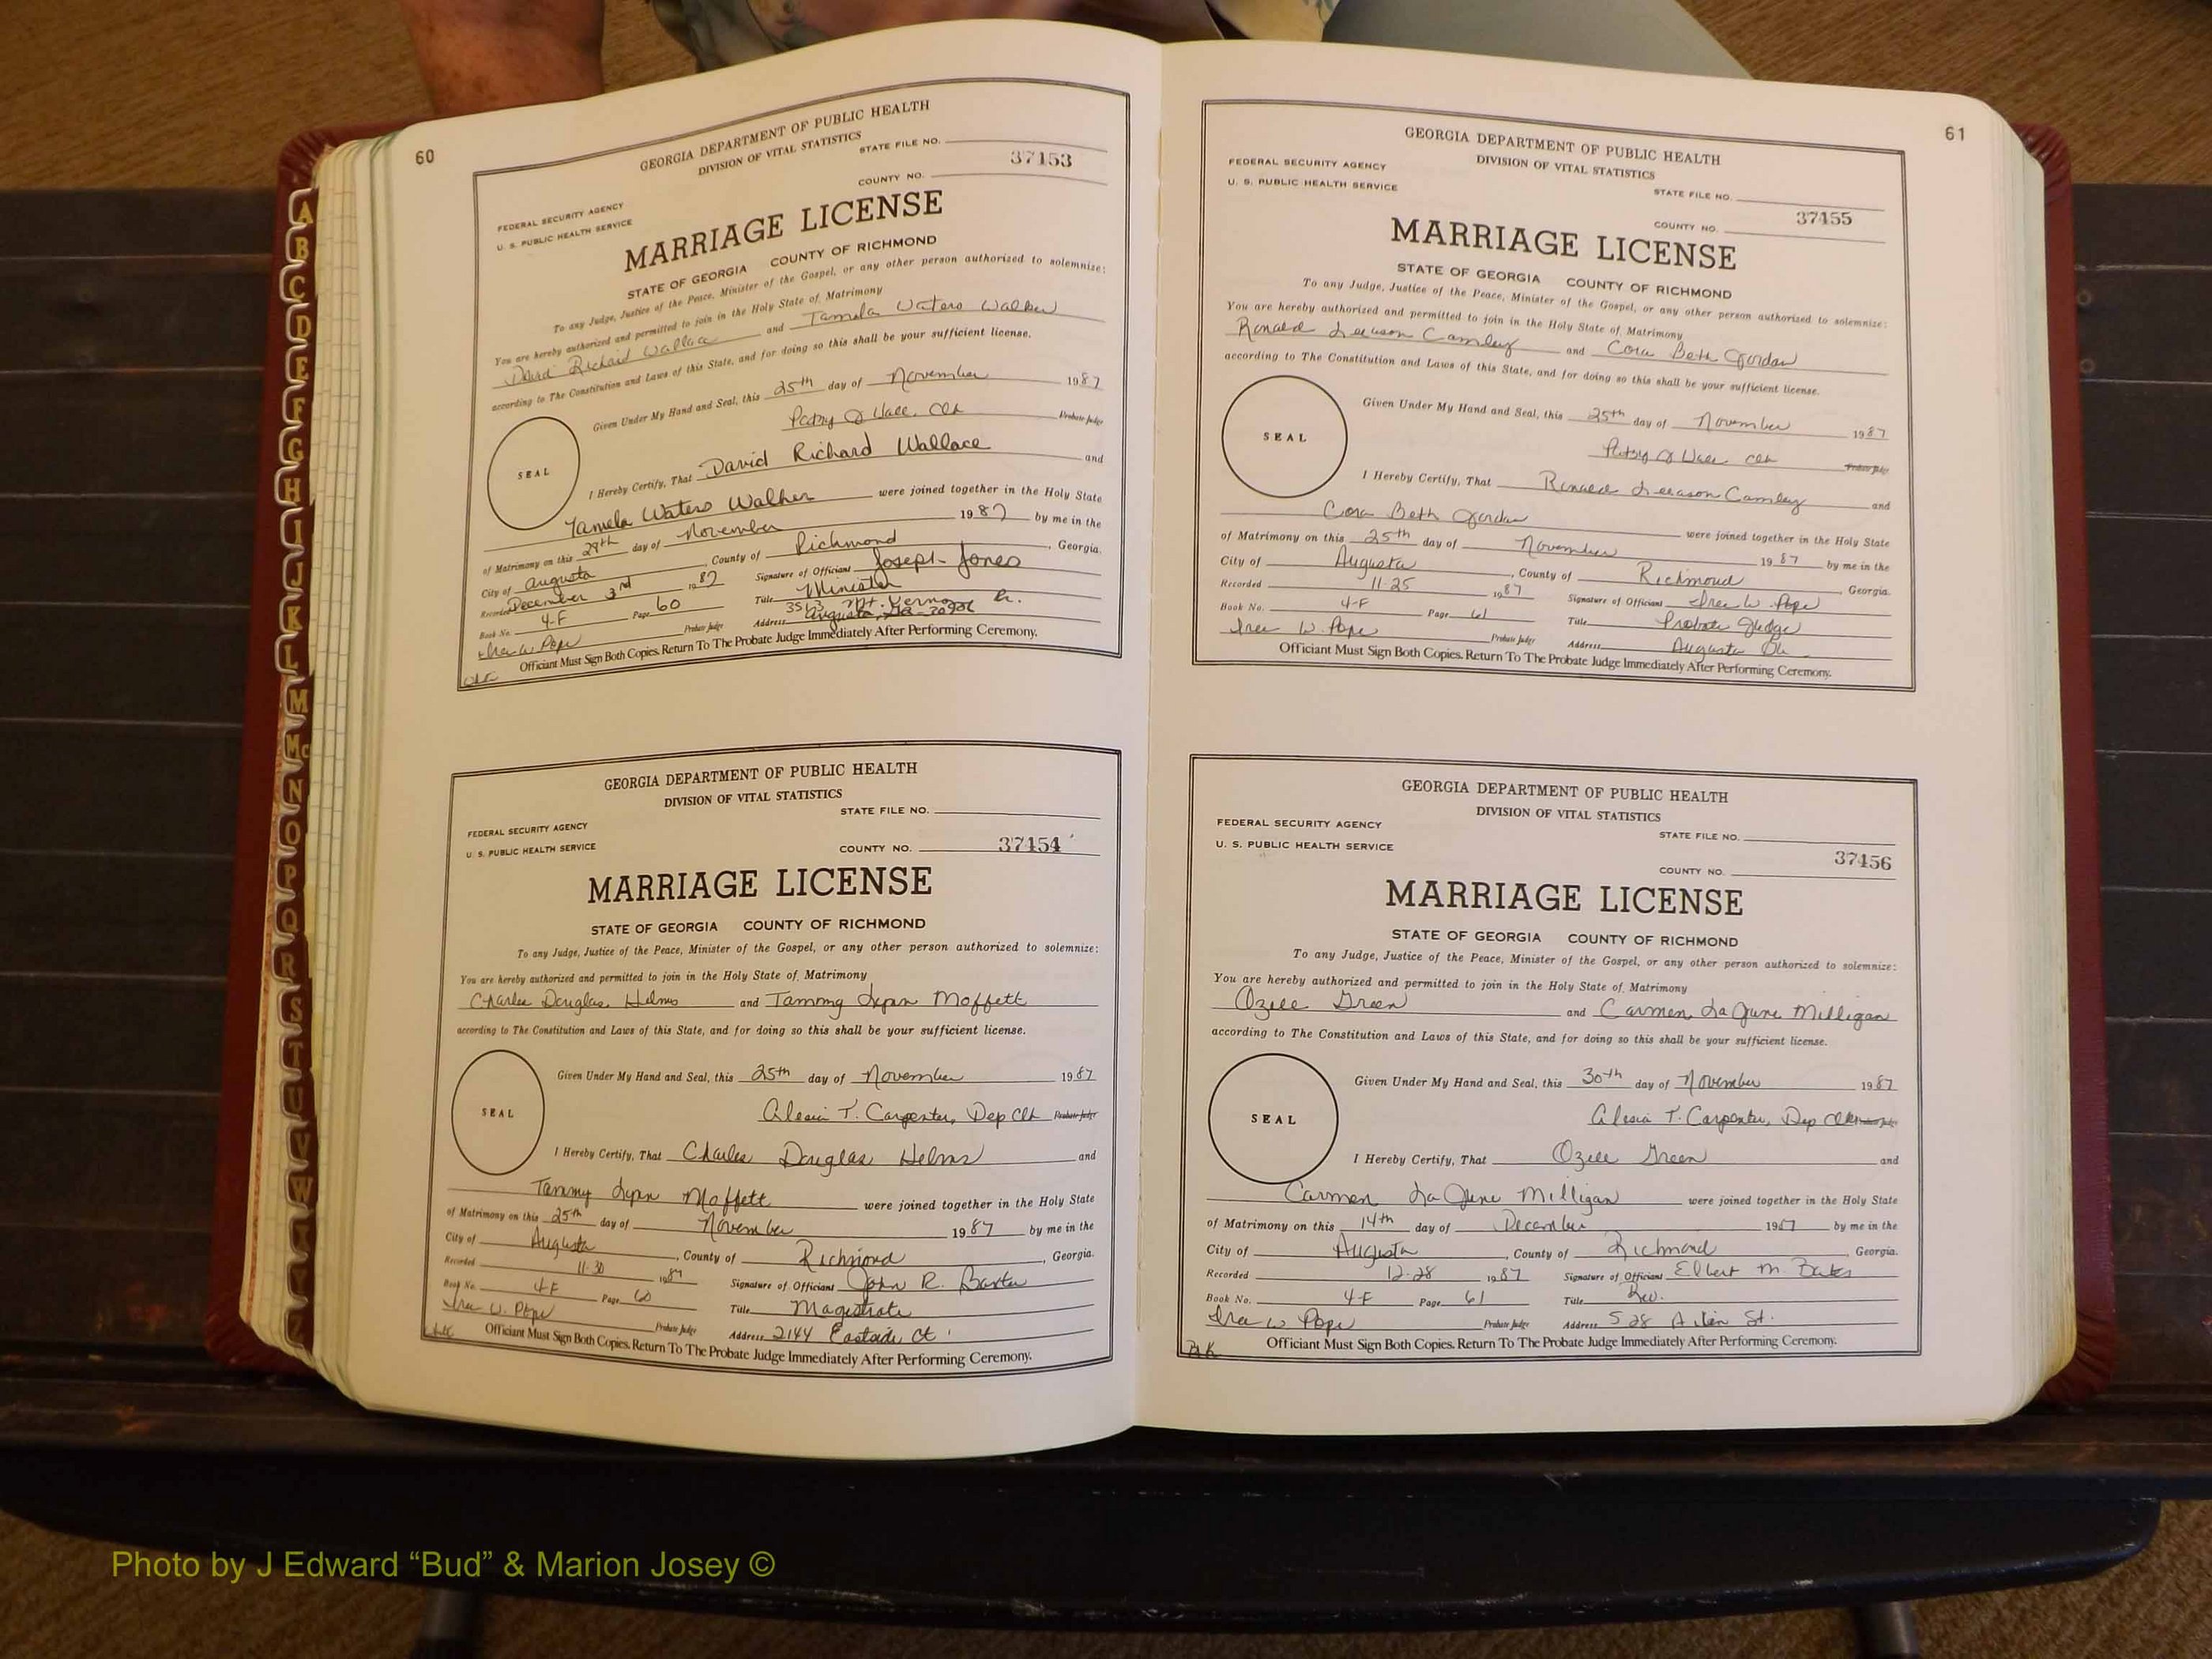 60
GEORGIA DEPARTMENT OF PUBLIC HEALTH
DIVISION OF VITAL STATISTICS
STATE FILE NO.
37153
COUNTY NO.
FEDERAL SECURITY AGENCY
U. S. PUBLIC HEALTH SERVICE
MARRIAGE LICENSE
STATE OF GEORGIA COUNTY OF RICHMOND
To any Judge, Justice of the Peace, Minister of the Gospel, or any other person authorized to solemnize:
You are hereby authorized and permitted to join in the Holy State of Matrimony
David Richard Wallace and Tamela Waters Walker
according to The Constitution and Laws of this State, and for doing so this shall be your sufficient license.
Given Under My Hand and Seal, this 25th day of November 1987
Patsy J Wall, Clk Probate Judge
SEAL
I Hereby Certify, That David Richard Wallace and
Tamela Waters Walker were joined together in the Holy State
of Matrimony on this 29th day of November 1987 by me in the
City of Augusta, County of Richmond, Georgia.
Recorded December 3rd 1987 Signature of Officiant Joseph Jones
Book No. 4-F Page 60 Title Minister
Address 3513 Mt. Vernon Dr.
Augusta, Ga
Ira W. Pope Probate Judge
Officiant Must Sign Both Copies. Return To The Probate Judge Immediately After Performing Ceremony.
GEORGIA DEPARTMENT OF PUBLIC HEALTH
DIVISION OF VITAL STATISTICS
STATE FILE NO.
FEDERAL SECURITY AGENCY
U. S. PUBLIC HEALTH SERVICE
COUNTY NO. 37154
MARRIAGE LICENSE
STATE OF GEORGIA COUNTY OF RICHMOND
To any Judge, Justice of the Peace, Minister of the Gospel, or any other person authorized to solemnize:
You are hereby authorized and permitted to join in the Holy State of Matrimony
Charles Douglas Helms and Tammy Lynn Moffett
according to The Constitution and Laws of this State, and for doing so this shall be your sufficient license.
Given Under My Hand and Seal, this 25th day of November 1987
Alesia T. Carpenter, Dep Clk Probate Judge
SEAL
I Hereby Certify, That Charles Douglas Helms and
Tammy Lynn Moffett were joined together in the Holy State
of Matrimony on this 25th day of November 1987 by me in the
City of Augusta, County of Richmond, Georgia.
Recorded 11-30 1987 Signature of Officiant John R. Baxter
Book No. 4F Page 60 Title Magistrate
Ira W. Pope Probate Judge Address 2144 Eastside Ct
Officiant Must Sign Both Copies. Return To The Probate Judge Immediately After Performing Ceremony.
61
GEORGIA DEPARTMENT OF PUBLIC HEALTH
DIVISION OF VITAL STATISTICS
FEDERAL SECURITY AGENCY
U. S. PUBLIC HEALTH SERVICE
STATE FILE NO.
37155
COUNTY NO.
MARRIAGE LICENSE
STATE OF GEORGIA COUNTY OF RICHMOND
To any Judge, Justice of the Peace, Minister of the Gospel, or any other person authorized to solemnize:
You are hereby authorized and permitted to join in the Holy State of Matrimony
Ronald Camley and Cora Beth Jordan
according to The Constitution and Laws of this State, and for doing so this shall be your sufficient license.
Given Under My Hand and Seal, this 25th day of November 1987
Patsy J Wall Clk Probate Judge
SEAL
I Hereby Certify, That Ronald Camley and
Cora Beth Jordan were joined together in the Holy State
of Matrimony on this 25th day of November 1987 by me in the
City of Augusta, County of Richmond, Georgia.
Recorded 11-25 1987 Signature of Officiant Ira W. Pope
Book No. 4-F Page 61 Title Probate Judge
Ira W. Pope Probate Judge Address Augusta Ga
Officiant Must Sign Both Copies. Return To The Probate Judge Immediately After Performing Ceremony.
GEORGIA DEPARTMENT OF PUBLIC HEALTH
DIVISION OF VITAL STATISTICS
FEDERAL SECURITY AGENCY
U. S. PUBLIC HEALTH SERVICE
STATE FILE NO.
37156
COUNTY NO.
MARRIAGE LICENSE
STATE OF GEORGIA COUNTY OF RICHMOND
To any Judge, Justice of the Peace, Minister of the Gospel, or any other person authorized to solemnize:
You are hereby authorized and permitted to join in the Holy State of Matrimony
Ozell Green and Carmen LaJune Milligan
according to The Constitution and Laws of this State, and for doing so this shall be your sufficient license.
Given Under My Hand and Seal, this 30th day of November 1987
Alesia T. Carpenter, Dep Clk Probate Judge
SEAL
I Hereby Certify, That Ozell Green and
Carmen LaJune Milligan were joined together in the Holy State
of Matrimony on this 14th day of December 1987 by me in the
City of Augusta, County of Richmond Georgia.
Recorded 12-28 1987 Signature of Officiant Elbert M. Bates
Book No. 4-F Page 61 Title Rev.
Ira W Pope Probate Judge Address 528 Aiken St.
Officiant Must Sign Both Copies. Return To The Probate Judge Immediately After Performing Ceremony.
A
B
C
D
E
F
G
H
I
J
K
L
M
Mc
N
O
P
Q
R
S
T
U
V
W
X
Y
Z
Photo by J Edward “Bud” & Marion Josey ©